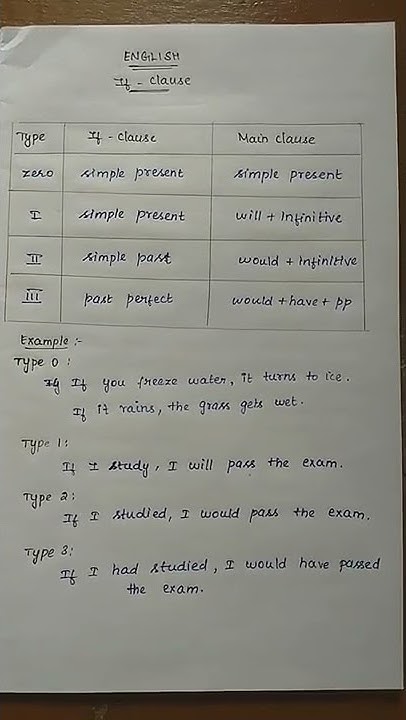 ENGLISH
If - clause
Type If - clause Main clause
zero simple present simple present
I simple present will + Infinitive
II simple past would + infinitive
III past perfect would + have + pp
Example :-
Type 0 :
If you freeze water, it turns to ice.
If it rains, the grass gets wet.
Type 1:
If I study, I will pass the exam.
Type 2:
If I studied, I would pass the exam.
Type 3:
If I had studied, I would have passed
the exam.